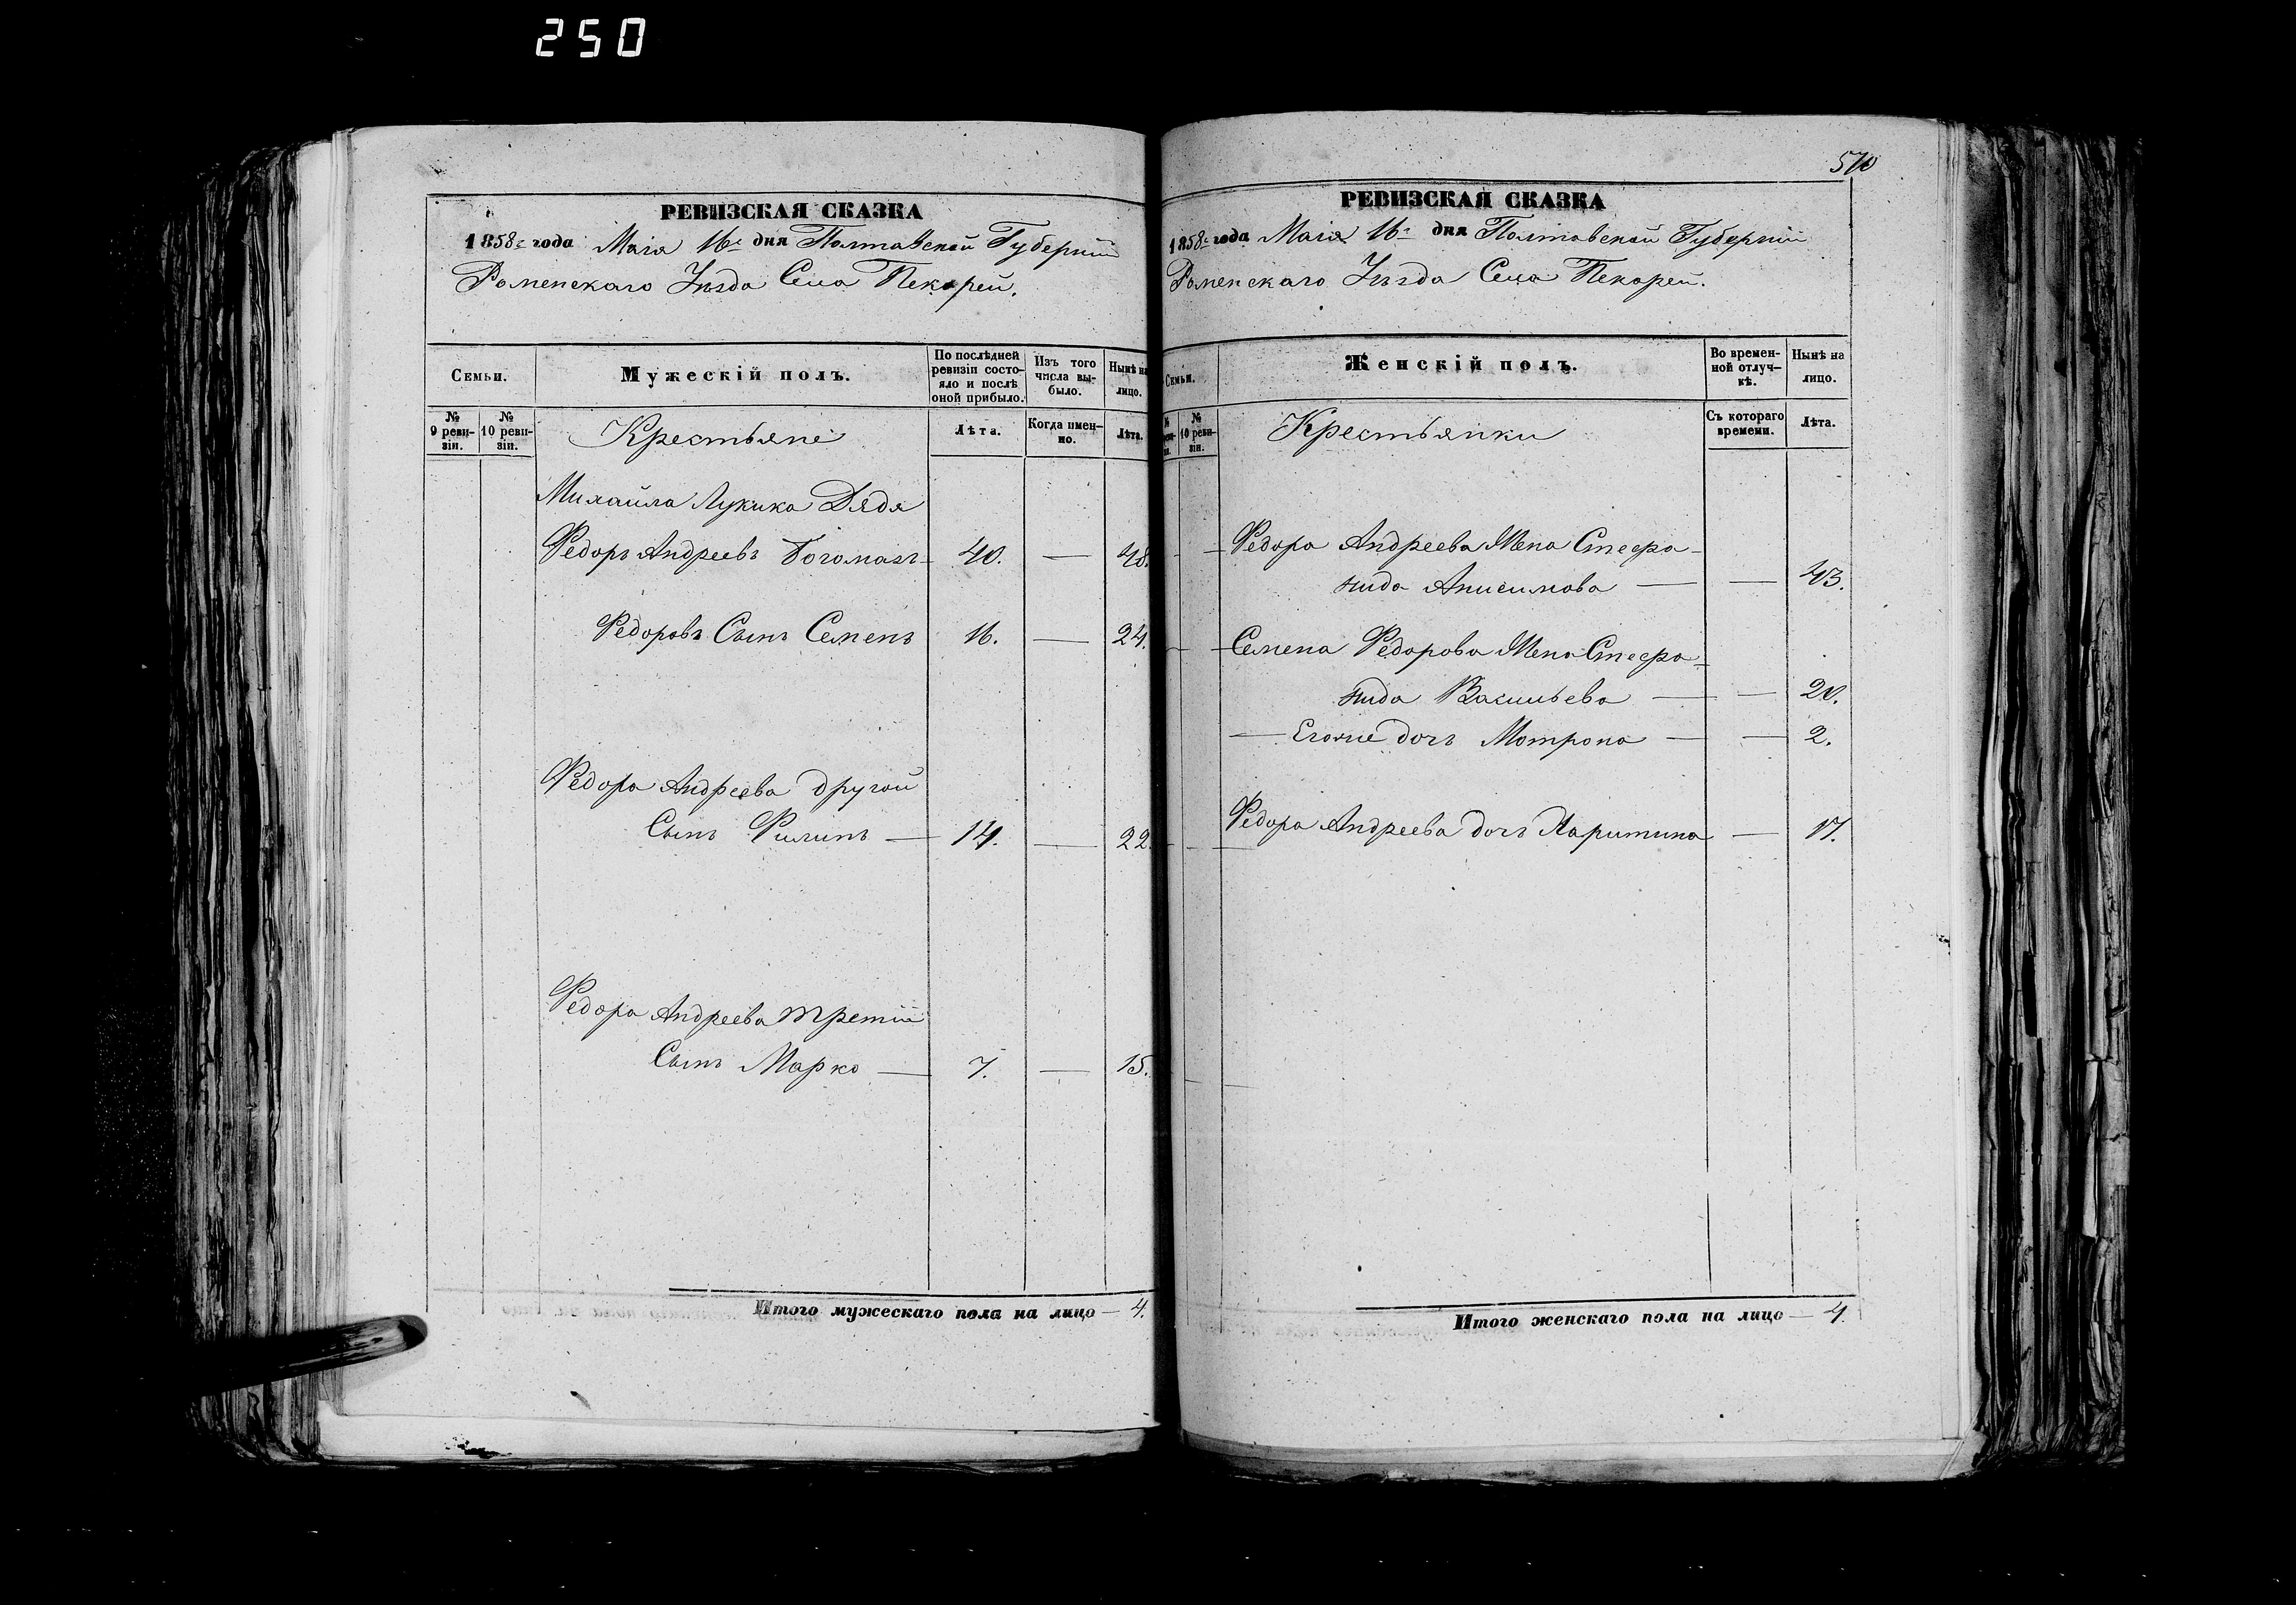 250
РЕВИЗСКАЯ СКАЗКА
1858г. года Маія 16го дня Полтавской Губерніи
Роменскаго Уѣзда Села Пекарей.
Семьи.
Мужескій полъ.
По послѣдней ревизіи состояло и послѣ оной прибыло.
Изъ того числа выбыло.
Нынѣ на лицо.
№ 9 ревизіи.
№ 10 ревизіи.
Крестьяне
Лѣта.
Когда именно.
Лѣта.
Михайла Лукича Дядя
Федоръ Андреевъ Богомазъ 40. — 48.
Федоровъ Сынъ Семенъ 16. — 24.
Федора Андреева другой
Сынъ Филипъ — 14. — 22.
Федора Андреева третій
Сынъ Марко — 7. — 15.
Итого мужескаго пола на лицо — 4.
570
РЕВИЗСКАЯ СКАЗКА
1858г. года Маія 16го дня Полтавской Губерніи
Роменскаго Уѣзда Села Пекарей.
Семьи.
Женскій полъ.
Во временной отлучкѣ.
Нынѣ на лицо.
№ 10 ревизіи.
Крестьянки
Съ котораго времени.
Лѣта.
Федора Андреева Жена Стефа-
нида Анисимова — — 43.
Семена Федорова Жена Стефа-
нида Васильева — — 20.
— Егоже дочь Мотрона — — 2.
Федора Андреева дочь Харитина — 17.
Итого женскаго пола на лицо — 4.